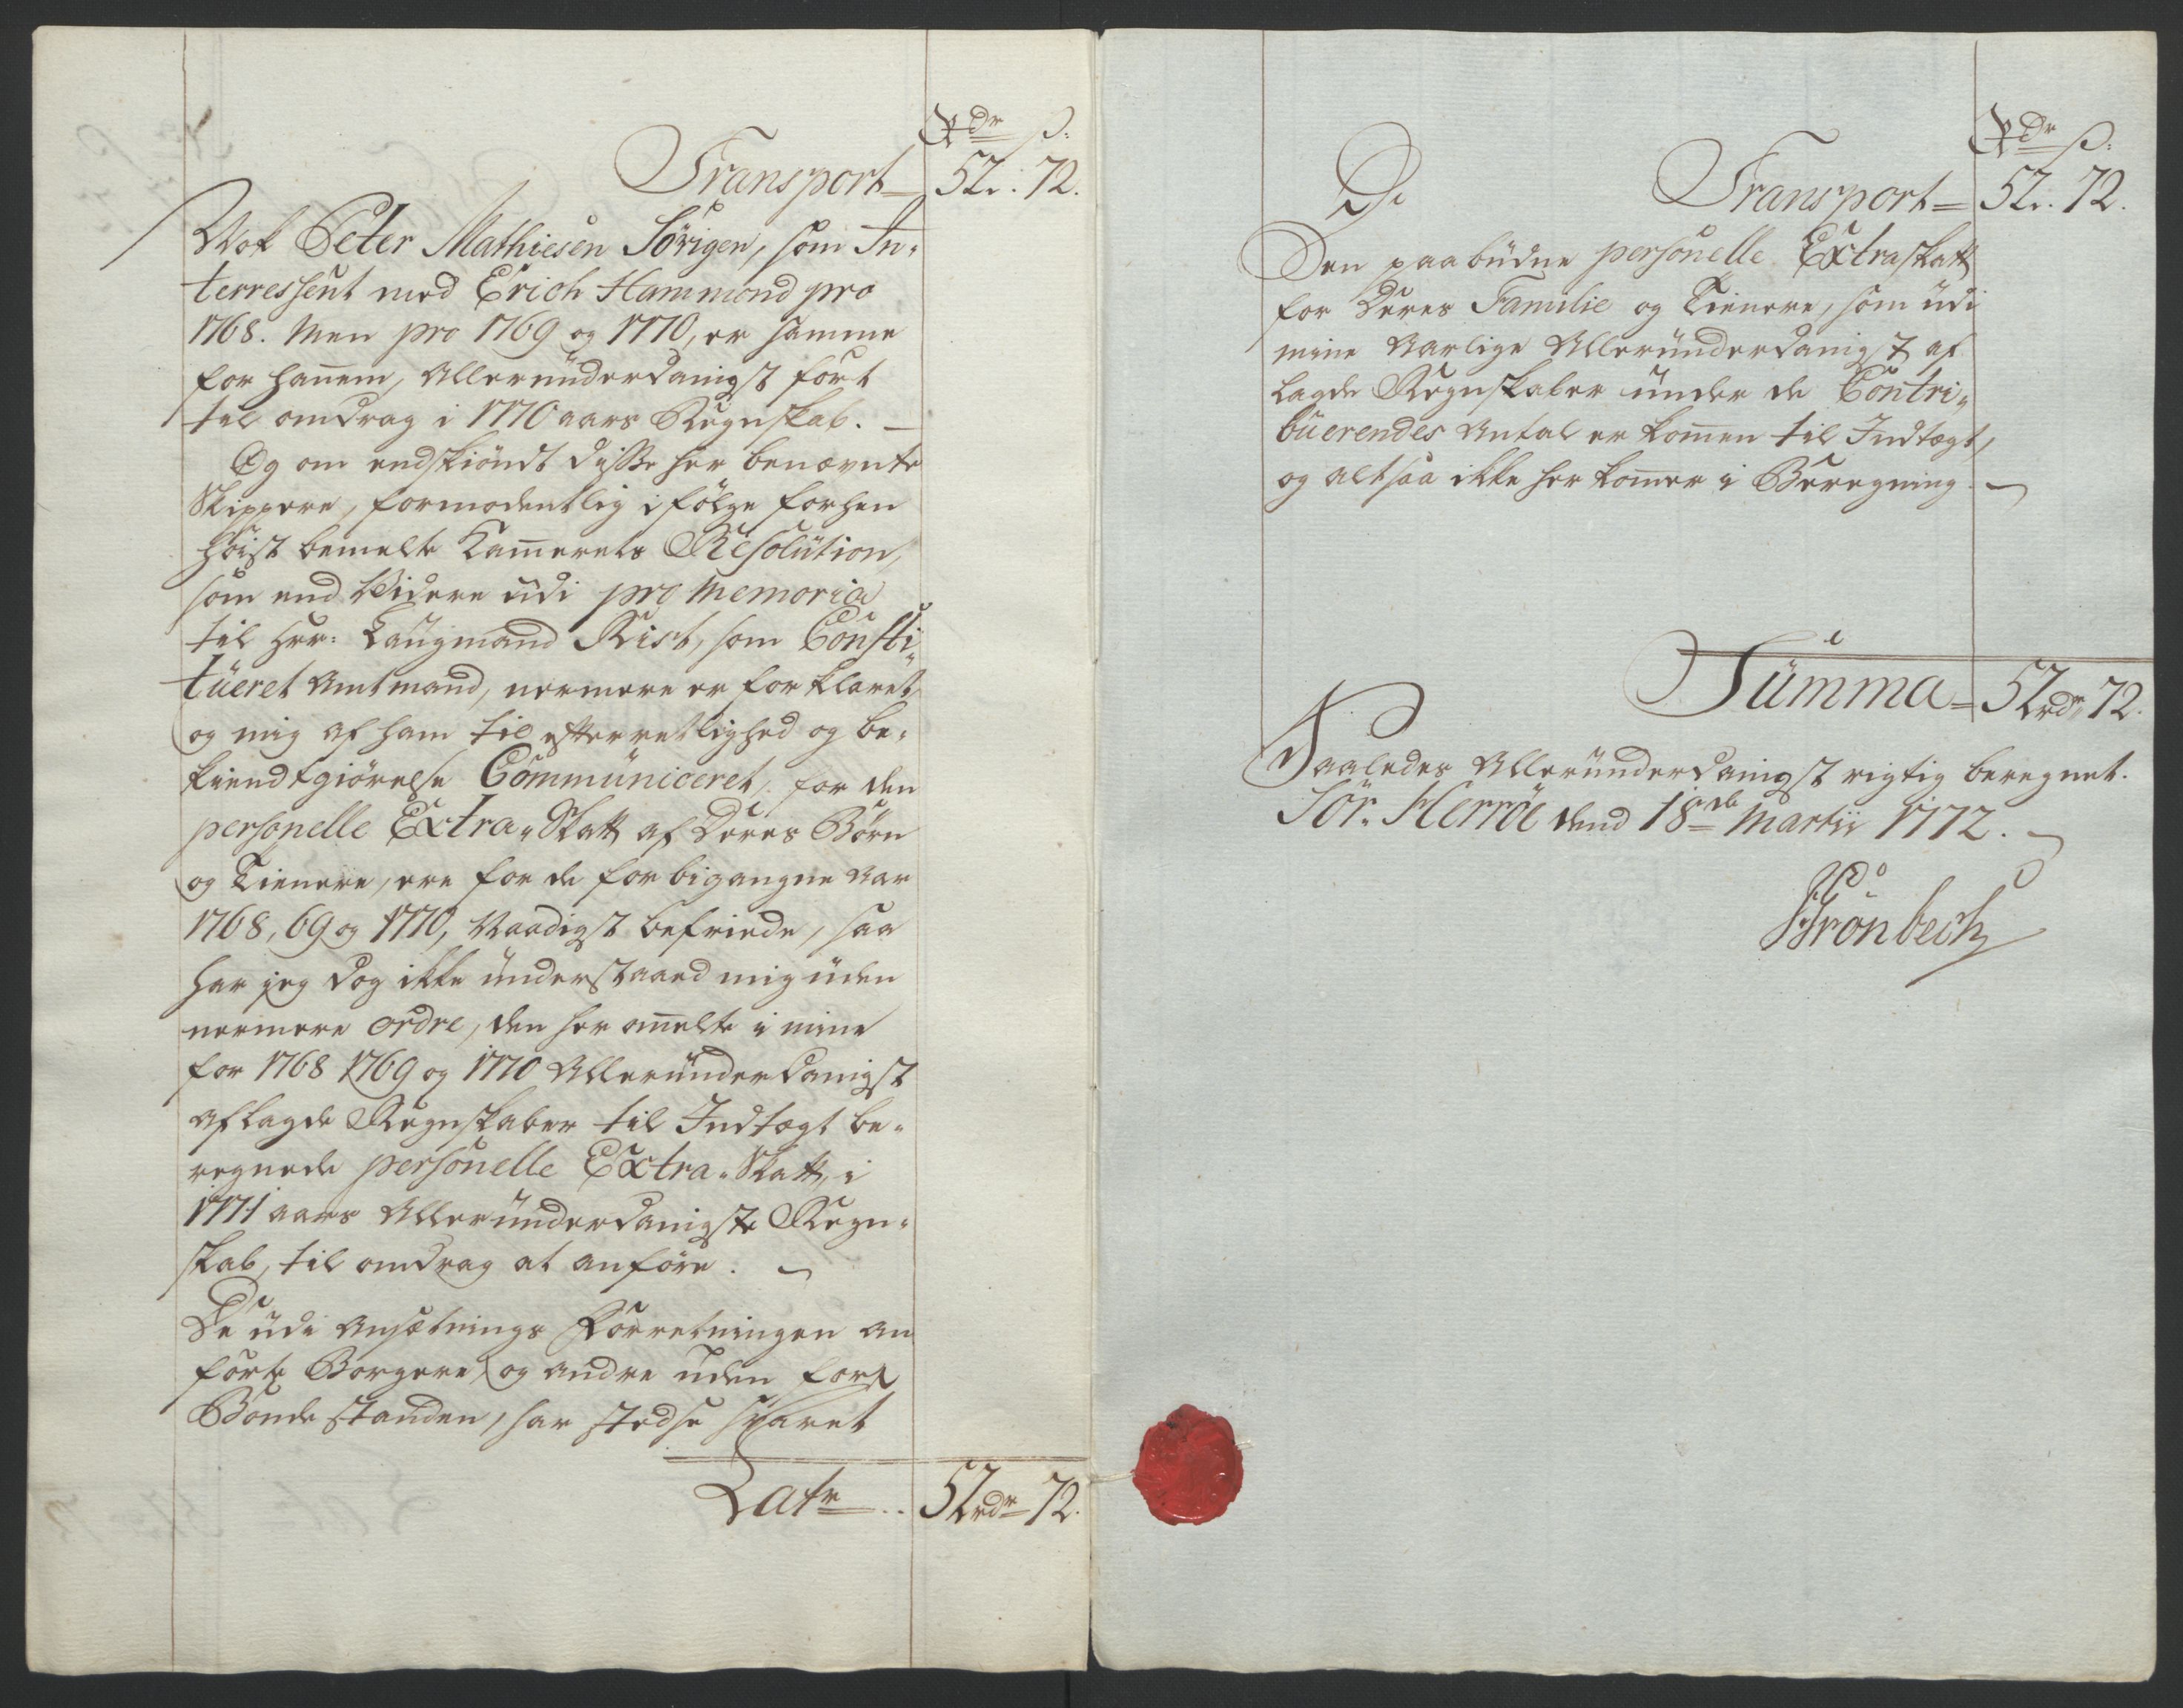 Rdr ß:
Transport = 52. 72.
Not Peter Mathiesen Sörigen, som In-
terressent med Erich Hammond pro
1768. Men pro 1769 og 1770, er samme
for hannem, Alleründerdanigst fört
til omdrag i 1770 aars Regnskab. —
Og om endskiöndt disse her benævnte
Skippere, formodentlig i fölge forhen
höist bemelte Kamerets Resolution,
som end videre üdi pro Memoria
til Hrr: Laugmand Rist, som Consti-
tüeret Amtmand, nermere er forklaret
og mig af ham til efterretlighed og be-
kiendtgiörelse Commüniceret, for den
personelle Extra-Skatt af Deres Börn
og Tienere, ere for de forbigangne Aar
1768, 69 og 1770, Naadigst befriede, saa
har jeg dog ikke ünderstaaed mig üden
nermere ordre, den her omelte i mine
for 1768 1769 og 1770 Alleründerdanigst
aflagde Regnskaber til Indtægt be-
regnede personelle Extra-Skatt, i
1771 aars Alleründerdanigste Regn-
skab, til omdrag at anföre. —
De üdi Ansætnings Forretningen an
förte Borgere, og andre uden for
Bondestanden, har stedse svaret
Latr .. 52rdr 72.
Rdr ß:
Transport = 52. 72.
Den paabüdne personelle Extraskatt
for Deres Familie og Tienere, som üdi
mine Aarlige Alleründerdanigst af
lagde Regnskaber ünder de Contri-
büerendes Antal er komen til Indtægt,
og altsaa ikke her komer i Beregning. —
Sümma = 52rdr 72.
Saaledes Alleründerdanigst rigtig beregnet.
Sör-Herröe dend 18de Martii 1772. —
Grönbech